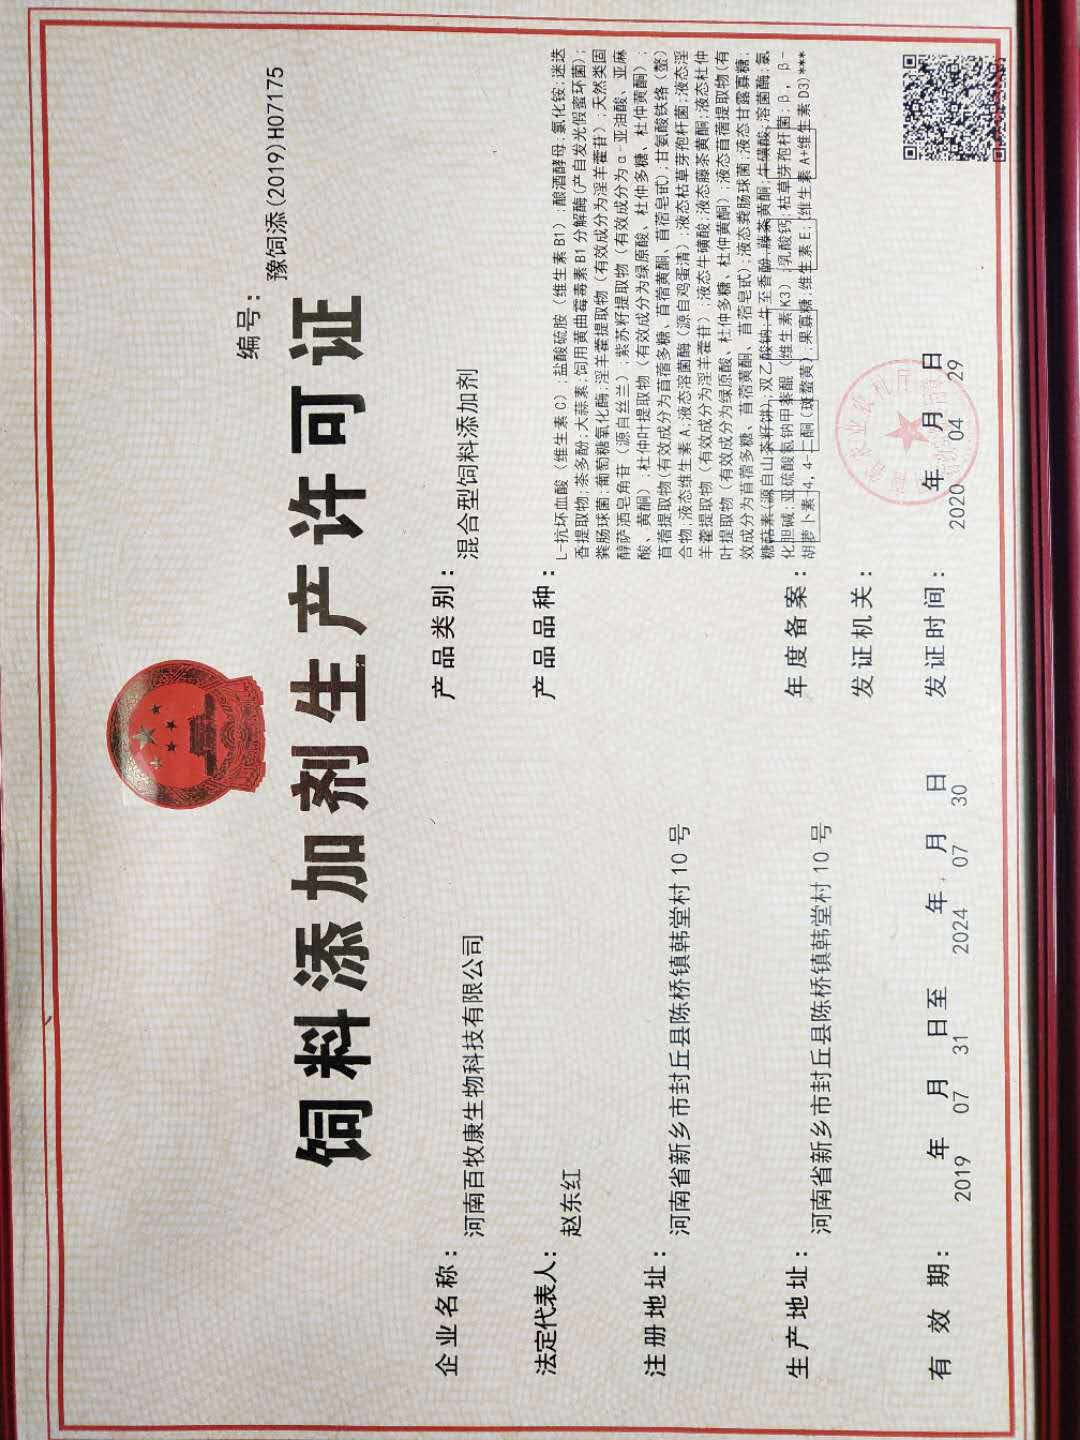 编号：
豫饲添(2019)H07175
饲料添加剂生产许可证
企业名称：
河南百牧康生物科技有限公司
法定代表人：
赵东红
注册地址：
河南省新乡市封丘县陈桥镇韩堂村10号
生产地址：
河南省新乡市封丘县陈桥镇韩堂村10号
有 效 期：
年 月 日至 年 月 日
2019 07 31 2024 07 30
产品类别：
混合型饲料添加剂
产品品种：
L-抗坏血酸（维生素C）;盐酸硫胺（维生素B1）;酿酒酵母;氯化铵;迷迭
香提取物;茶多酚;大蒜素;饲用黄曲霉毒素B1分解酶(产自发光假蜜环菌);
粪肠球菌;葡萄糖氧化酶;淫羊藿提取物（有效成分为淫羊藿苷）;天然类固
醇萨洒皂角苷（源自丝兰）;紫苏籽提取物（有效成分为α-亚油酸、亚麻
酸、黄酮）;杜仲叶提取物（有效成分为绿原酸、杜仲多糖、杜仲黄酮）;
苜蓿提取物(有效成分为苜蓿多糖、苜蓿黄酮、苜蓿皂甙);甘氨酸铁络（螯）
合物;液态维生素A;液态溶菌酶（源自鸡蛋清）;液态枯草芽孢杆菌;液态淫
羊藿提取物（有效成分为淫羊藿苷）;液态牛磺酸;液态藤茶黄酮;液态杜仲
叶提取物（有效成分为绿原酸、杜仲多糖、杜仲黄酮）;液态苜蓿提取物(有
效成分为苜蓿多糖、苜蓿黄酮、苜蓿皂甙);液态粪肠球菌;液态甘露寡糖;
糖萜素(源自山茶籽饼);双乙酸钠;牛至香酚;藤茶黄酮;牛磺酸;溶菌酶;氯
化胆碱;亚硫酸氢钠甲萘醌（维生素K3）;乳酸钙;枯草芽孢杆菌;β，β-
胡萝卜素-4,4-二酮(斑蝥黄);果寡糖;维生素E;(维生素A+维生素D3)***
年度备案：
发证机关：
发证时间：
年 月 日
2020 04 29